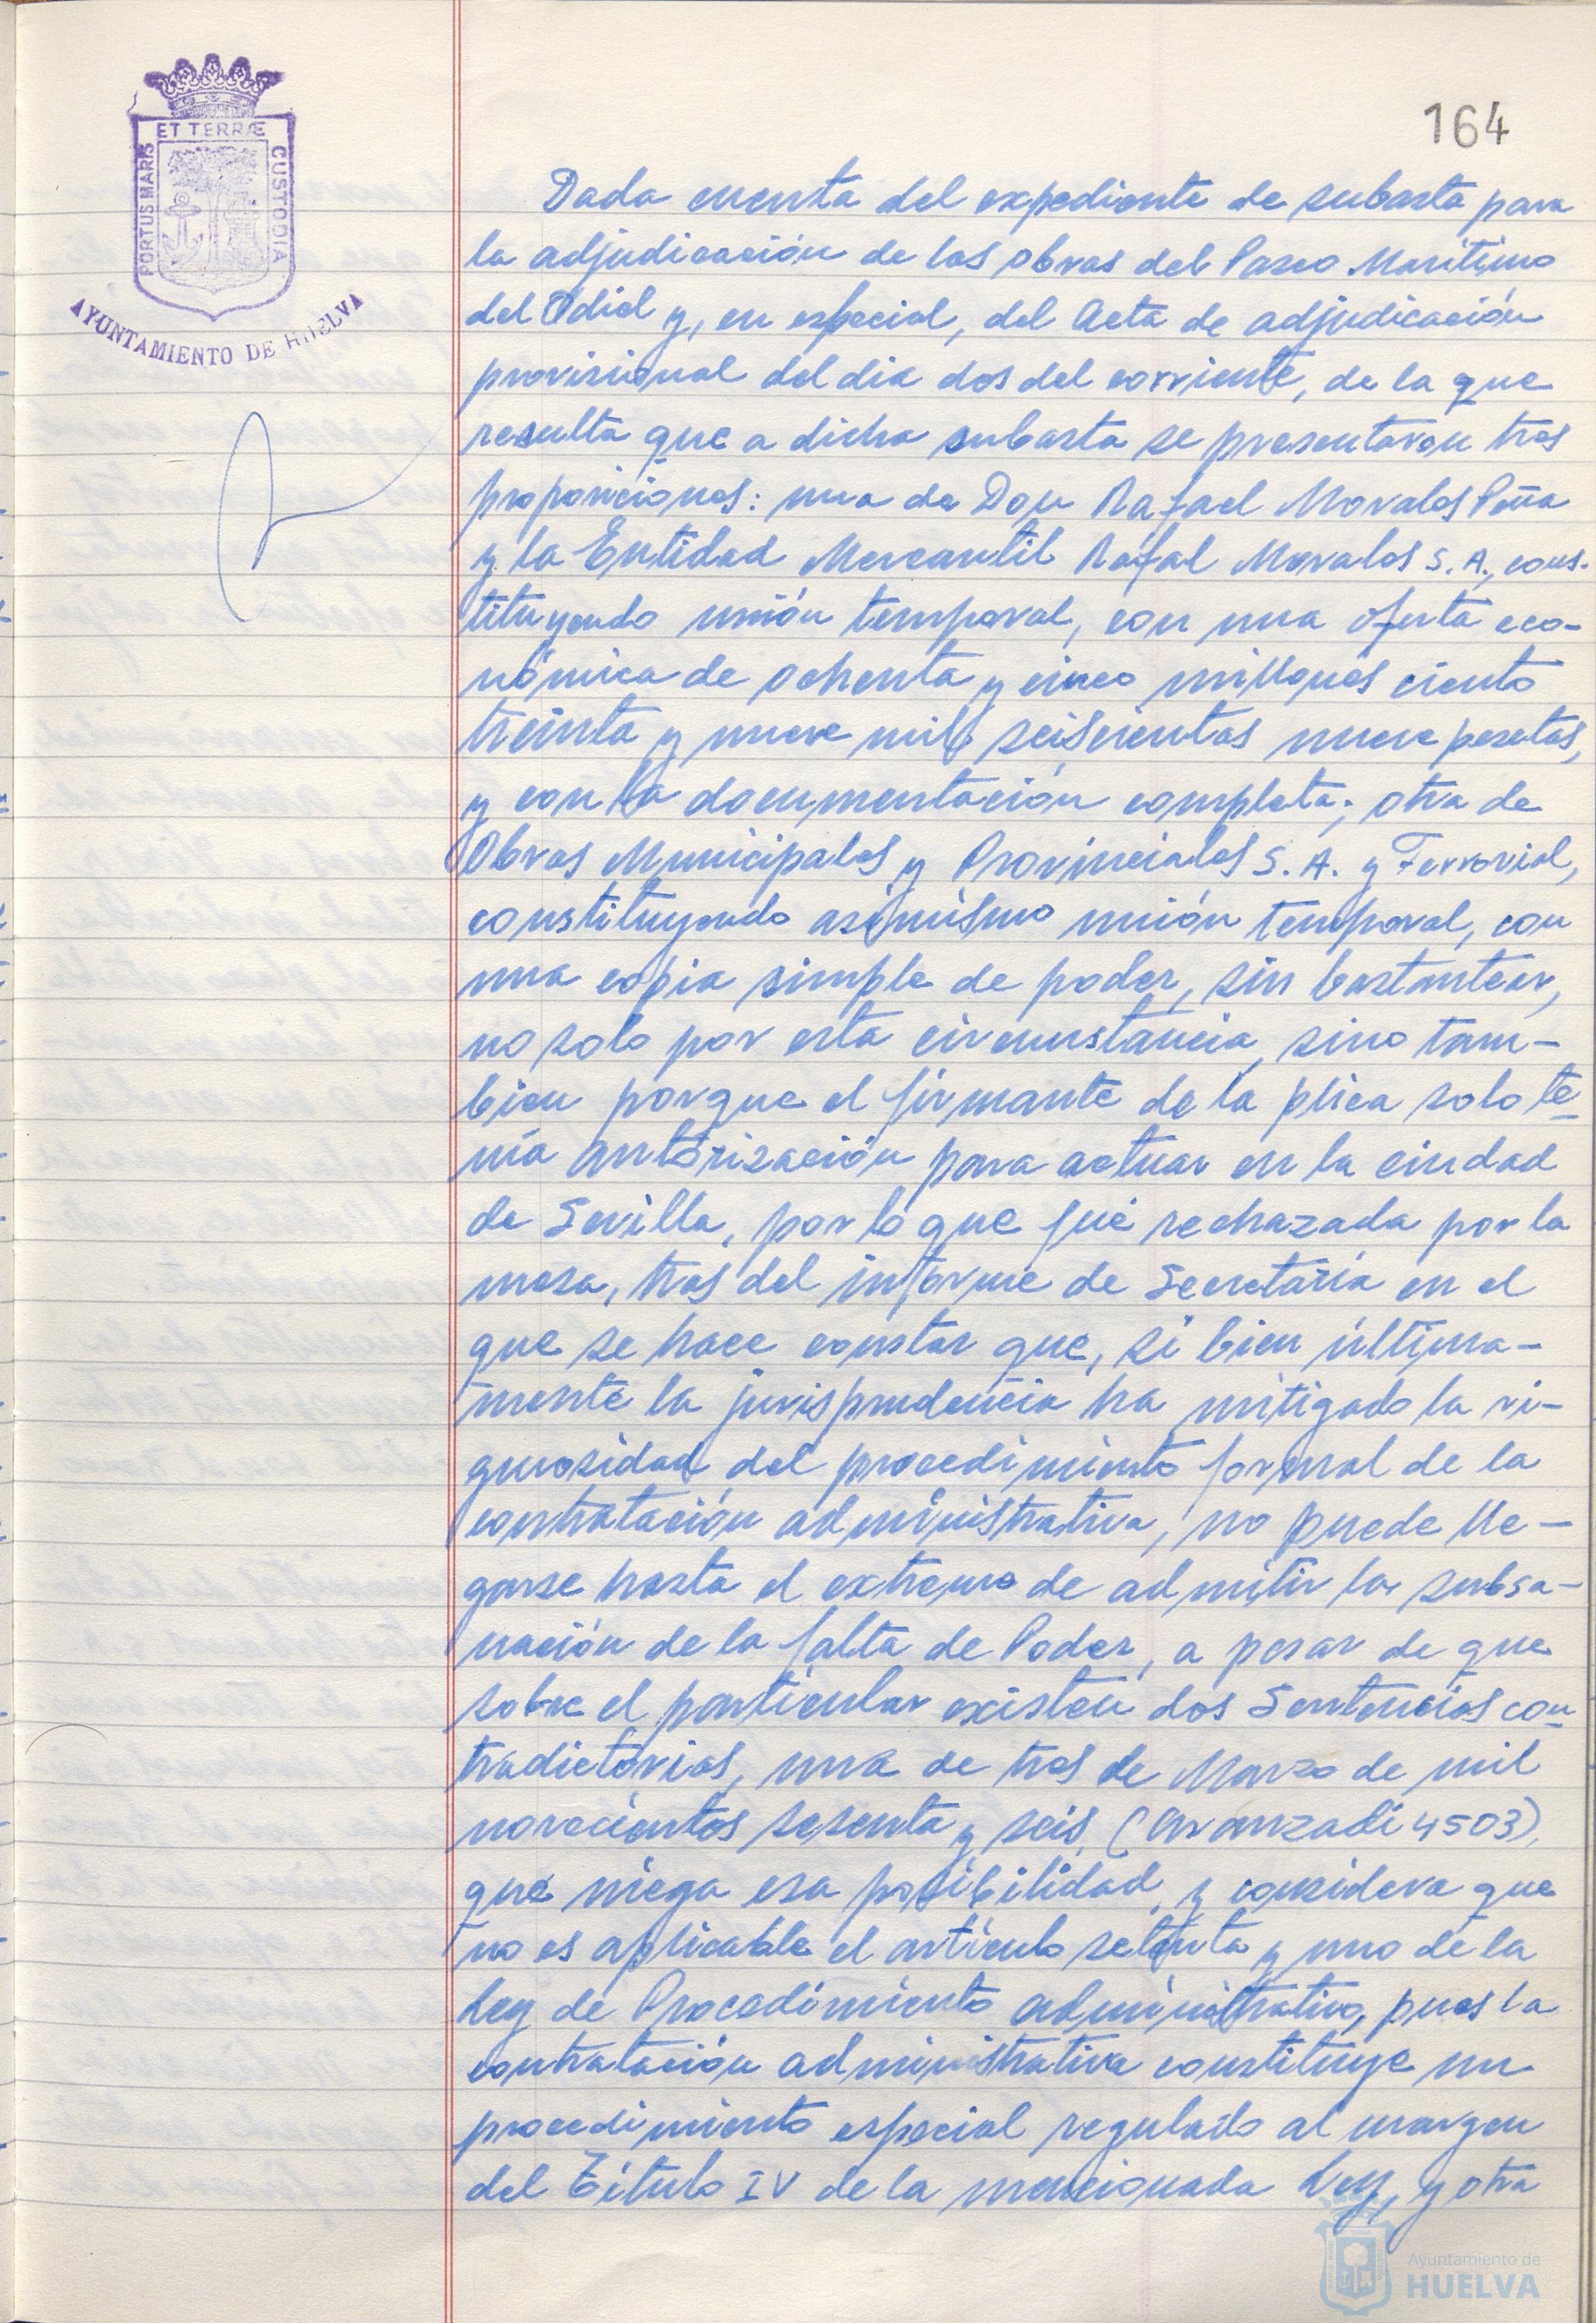 ET TERRÆ
PORTUS MARIS
CUSTODIA
AYUNTAMIENTO DE HUELVA
164
Dada cuenta del expediente de subasta para
la adjudicación de las obras del Paseo Marítimo
del Odiel y, en especial, del Acta de adjudicación
provisional del dia dos del corriente, de la que
resulta que a dicha subasta se presentaron tres
proposiciones: una de Don Rafael Morales Peña
y la Entidad Mercantil Rafal Morales S. A., cons-
tituyendo unión temporal, con una oferta eco-
nómica de ochenta y cinco millones ciento
treinta y nueve mil seiscientas nueve pesetas,
y con la documentación completa; otra de
Obras Municipales y Provinciales S. A. y Ferrovial,
constituyendo asimismo unión temporal, con
una copia simple de poder, sin bastantear,
no solo por esta circunstancia, sino tam-
bien porque el firmante de la plica solo te-
nía autorización para actuar en la ciudad
de Sevilla, por lo que fué rechazada por la
mesa, tras del informe de Secretaría en el
que se hace constar que, si bien última-
mente la jurisprudencia ha mitigado la ri-
gurosidad del procedimiento formal de la
contratación administrativa, no puede lle-
garse hasta el extremo de admitir la subsa-
nación de la falta de Poder, a pesar de que
sobre el particular existen dos Sentencias con-
tradictorias, una de tres de Marzo de mil
novecientos sesenta y seis, (Aranzadi 4503),
que niega esa posibilidad, y considera que
no es aplicable el artículo setenta y uno de la
Ley de Procedimiento administrativo, pues la
contratación administrativa constituye un
procedimiento especial regulado al margen
del Título IV de la mencionada Ley, y otra
Ayuntamiento de
HUELVA